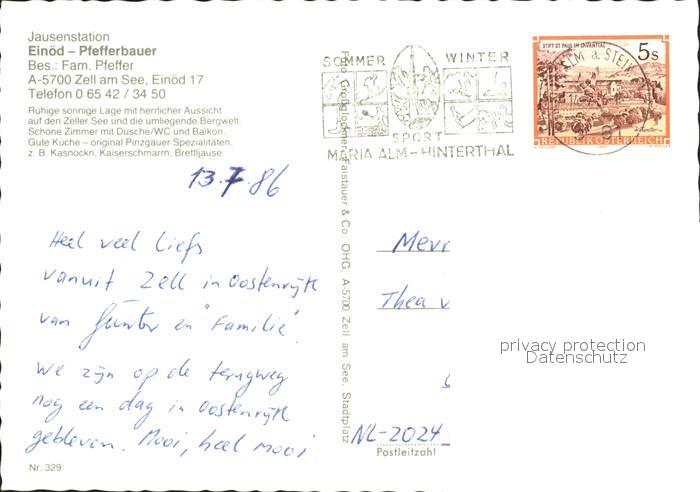 Jausenstation
Einöd – Pfefferbauer
Bes.: Fam. Pfeffer
A-5700 Zell am See, Einöd 17
Telefon 0 65 42 / 34 50
Ruhige sonnige Lage mit herrlicher Aussicht
auf den Zeller See und die umliegende Bergwelt.
Schöne Zimmer mit Dusche/WC und Balkon.
Gute Küche – original Pinzgauer Spezialitäten,
z. B. Kasnockn, Kaiserschmarrn, Brettljause.
13.7.86
Heel veel liefs
vanuit Zell in Oostenrijk
van Günter en "Familie".
We zijn op de terugweg
nog een dag in Oostenrijk
gebleven. Mooi, heel mooi
Nr. 329
Foto Großglockner, Faistauer & Co. OHG, A-5700 Zell am See, Stadtplatz
SOMMER WINTER
SPORT
MARIA ALM – HINTERTHAL
STIFT ST. PAUL IM LAVANTTAL
5 S
ALM a. STEIN
REPUBLIK ÖSTERREICH
Mevr
Thea v
NL-2024
Postleitzahl
privacy protection
Datenschutz